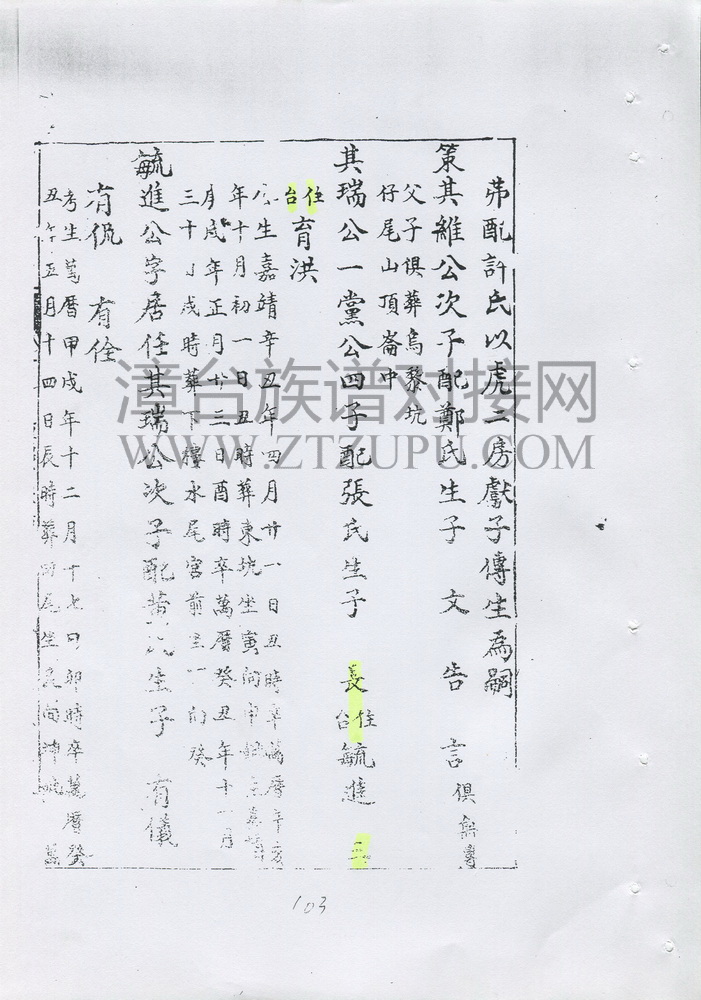 苐配許氏以虎二房獻子傳生為嗣
策其維公次子配鄭氏生子 文 告 言 俱無
父子俱葬烏黎坑
仔尾山頂崙中
其瑞公一黨公四子配張氏生子 長 住台 毓進 三
住台 育洪
生嘉靖辛丑年四月廿一日丑時卒萬曆辛亥
年十月初一日丑時葬東坑坐寅向申
月 戌年正月廿三日酉時卒萬曆癸丑年十一月
三十日戌時葬下樓水尾宮前坐 向癸
毓進公字居任其瑞公次子配黃氏生子 有儀
有侃 有佺
考生萬曆甲戌年十二月十七日卯時卒萬曆癸
丑年五月十四日辰時葬 尾坐艮向坤
漳台族谱对接网
WWW.ZTZUPU.COM
103